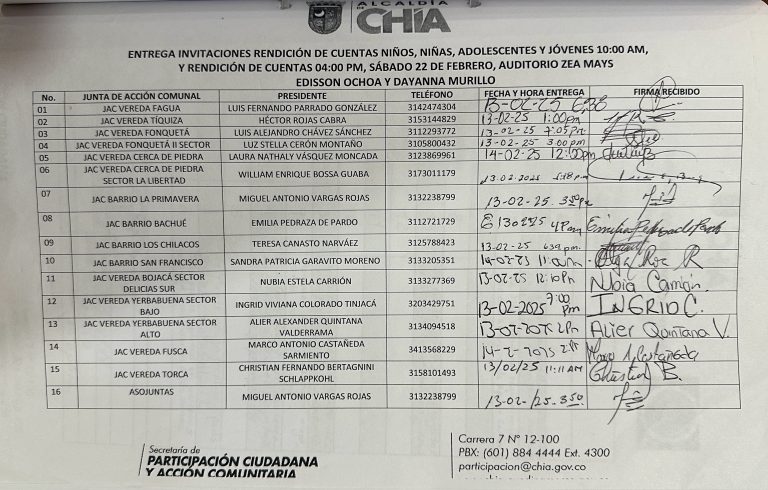 ALCALDÍA
DE CHÍA
ENTREGA INVITACIONES RENDICIÓN DE CUENTAS NIÑOS, NIÑAS, ADOLESCENTES Y JÓVENES 10:00 AM,
Y RENDICIÓN DE CUENTAS 04:00 PM, SÁBADO 22 DE FEBRERO, AUDITORIO ZEA MAYS
EDISSON OCHOA Y DAYANNA MURILLO
No. JUNTA DE ACCIÓN COMUNAL PRESIDENTE TELÉFONO FECHA Y HORA ENTREGA FIRMA RECIBIDO
01 JAC VEREDA FAGUA LUIS FERNANDO PARRADO GONZÁLEZ 3142474304 13-02-25
02 JAC VEREDA TÍQUIZA HÉCTOR ROJAS CABRA 3153144829 13-02-25 1:00pm
03 JAC VEREDA FONQUETÁ LUIS ALEJANDRO CHÁVEZ SÁNCHEZ 3112293772 13-02-25 7:05 pm
04 JAC VEREDA FONQUETÁ II SECTOR LUZ STELLA CERÓN MONTAÑO 3105800432 13-02-25 3:00 pm
05 JAC VEREDA CERCA DE PIEDRA LAURA NATHALY VÁSQUEZ MONCADA 3123869961 14-02-25 12:00pm
06 JAC VEREDA CERCA DE PIEDRA
SECTOR LA LIBERTAD WILLIAM ENRIQUE BOSSA GUABA 3173011179 13.02.2025
07 JAC BARRIO LA PRIMAVERA MIGUEL ANTONIO VARGAS ROJAS 3132238799 13-02-25.
08 JAC BARRIO BACHUÉ EMILIA PEDRAZA DE PARDO 3112721729 130225 4Pm
09 JAC BARRIO LOS CHILACOS TERESA CANASTO NARVÁEZ 3125788423 13-02-25
10 JAC BARRIO SAN FRANCISCO SANDRA PATRICIA GARAVITO MORENO 3133205351 14-02-25
11 JAC VEREDA BOJACÁ SECTOR
DELICIAS SUR NUBIA ESTELA CARRIÓN 3133277369 13-02-25 12:10Pm Nubia Carrión.
12 JAC VEREDA YERBABUENA SECTOR
BAJO INGRID VIVIANA COLORADO TINJACÁ 3203429751 13-02-2025 7:00 pm INGRID C.
13 JAC VEREDA YERBABUENA SECTOR
ALTO ALIER ALEXANDER QUINTANA
VALDERRAMA 3134094518 13-02-2025 2Pm Alier Quintana V.
14 JAC VEREDA FUSCA MARCO ANTONIO CASTAÑEDA
SARMIENTO 3413568229 14-2-2025
15 JAC VEREDA TORCA CHRISTIAN FERNANDO BERTAGNINI
SCHLAPPKOHL 3158101493 13/02/25 11:11 AM Christian B.
16 ASOJUNTAS MIGUEL ANTONIO VARGAS ROJAS 3132238799 13-02-/25.
Secretaría de
PARTICIPACIÓN CIUDADANA
Y ACCIÓN COMUNITARIA
Carrera 7 N° 12-100
PBX: (601) 884 4444 Ext. 4300
participacion@chia.gov.co